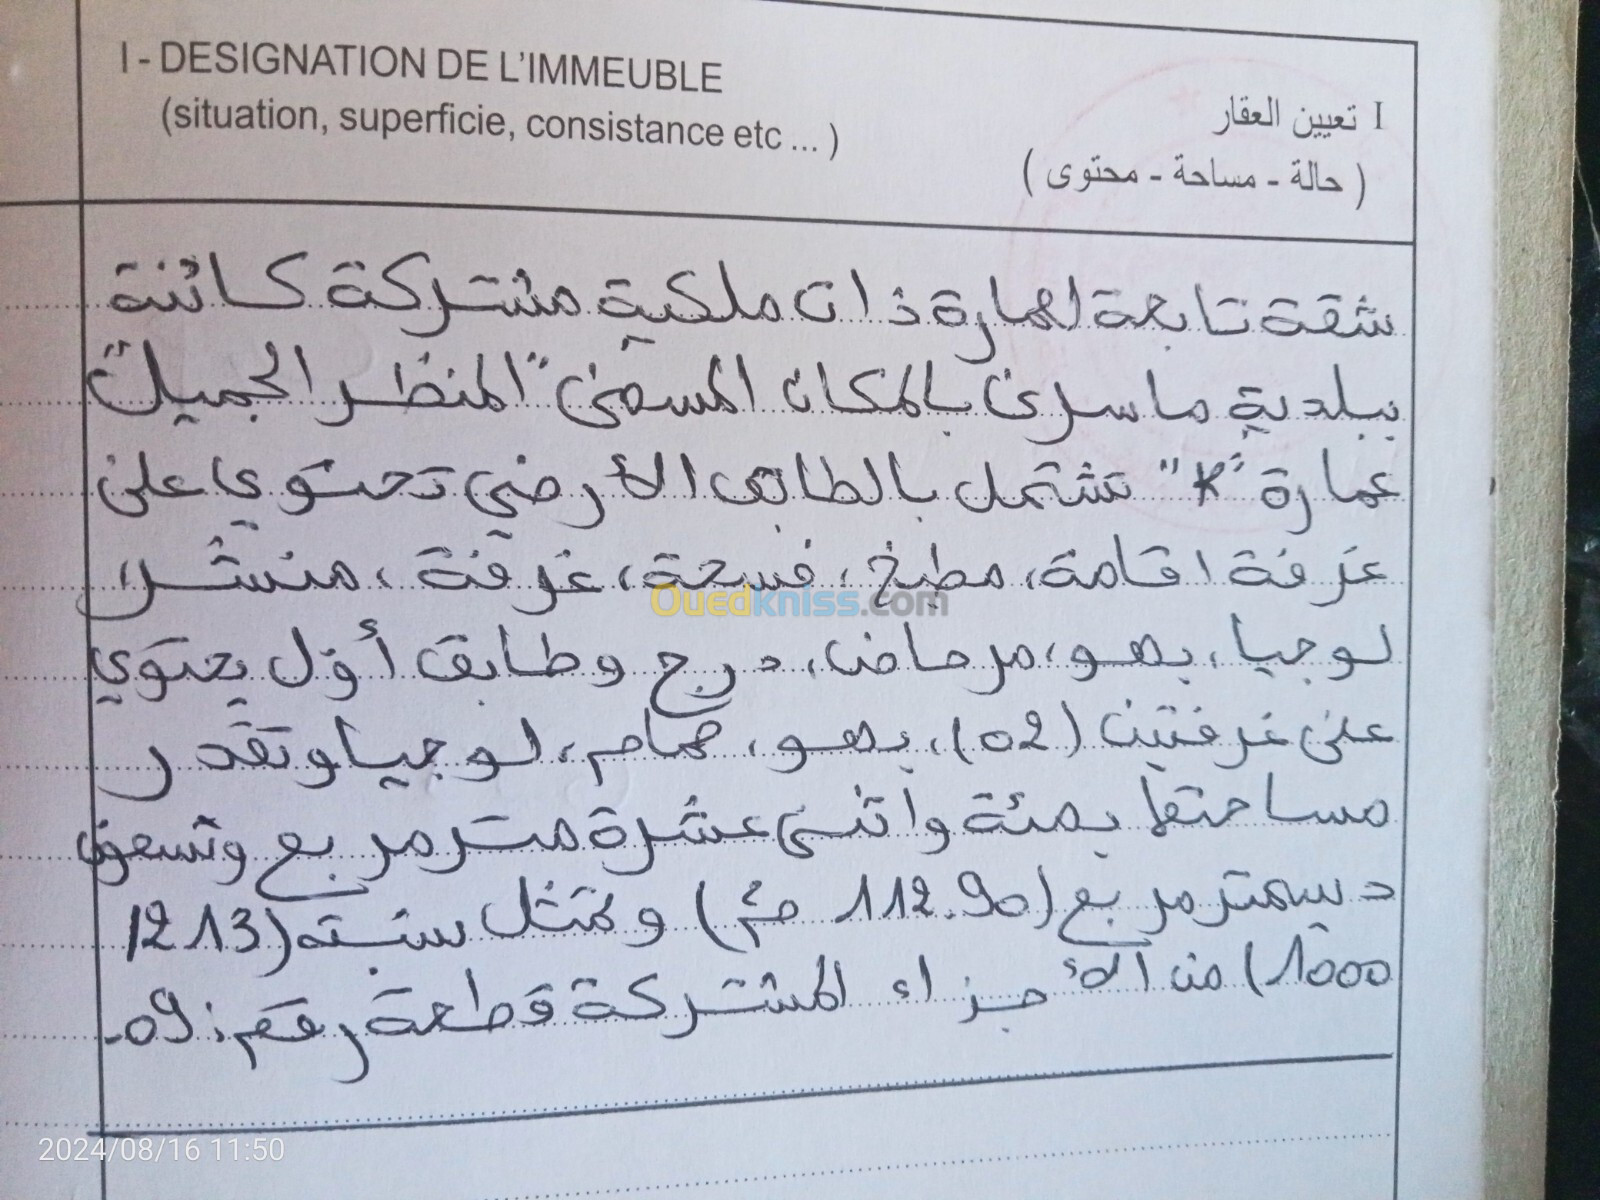 I - DESIGNATION DE L'IMMEUBLE
(situation, superficie, consistance etc ... )
I تعيين العقار
( حالة - مساحة - محتوى )
شقة تابعة لعمارة ذات ملكية مشتركة كائنة
ببلدية ماسرى بالمكان المسمى "المنظر الجميل"
عمارة "K" تشتمل بالطابق الأرضي تحتوي على
غرفة اقامة، مطبخ، فسحة، غرفة، منشر،
لوجيا، بهو، مرحاض، درج وطابق أول يحتوي
على غرفتين (02)، بهو، حمام، لوجيا وتقدر
مساحتها بمئة واثنى عشرة متر مربع وتسعون
دسيمتر مربع (112.90 م2) وتمثل نسبته (1213/
1000) من الأجزاء المشتركة قطعة رقم: 09-
Ouedkniss.com
2024/08/16 11:50